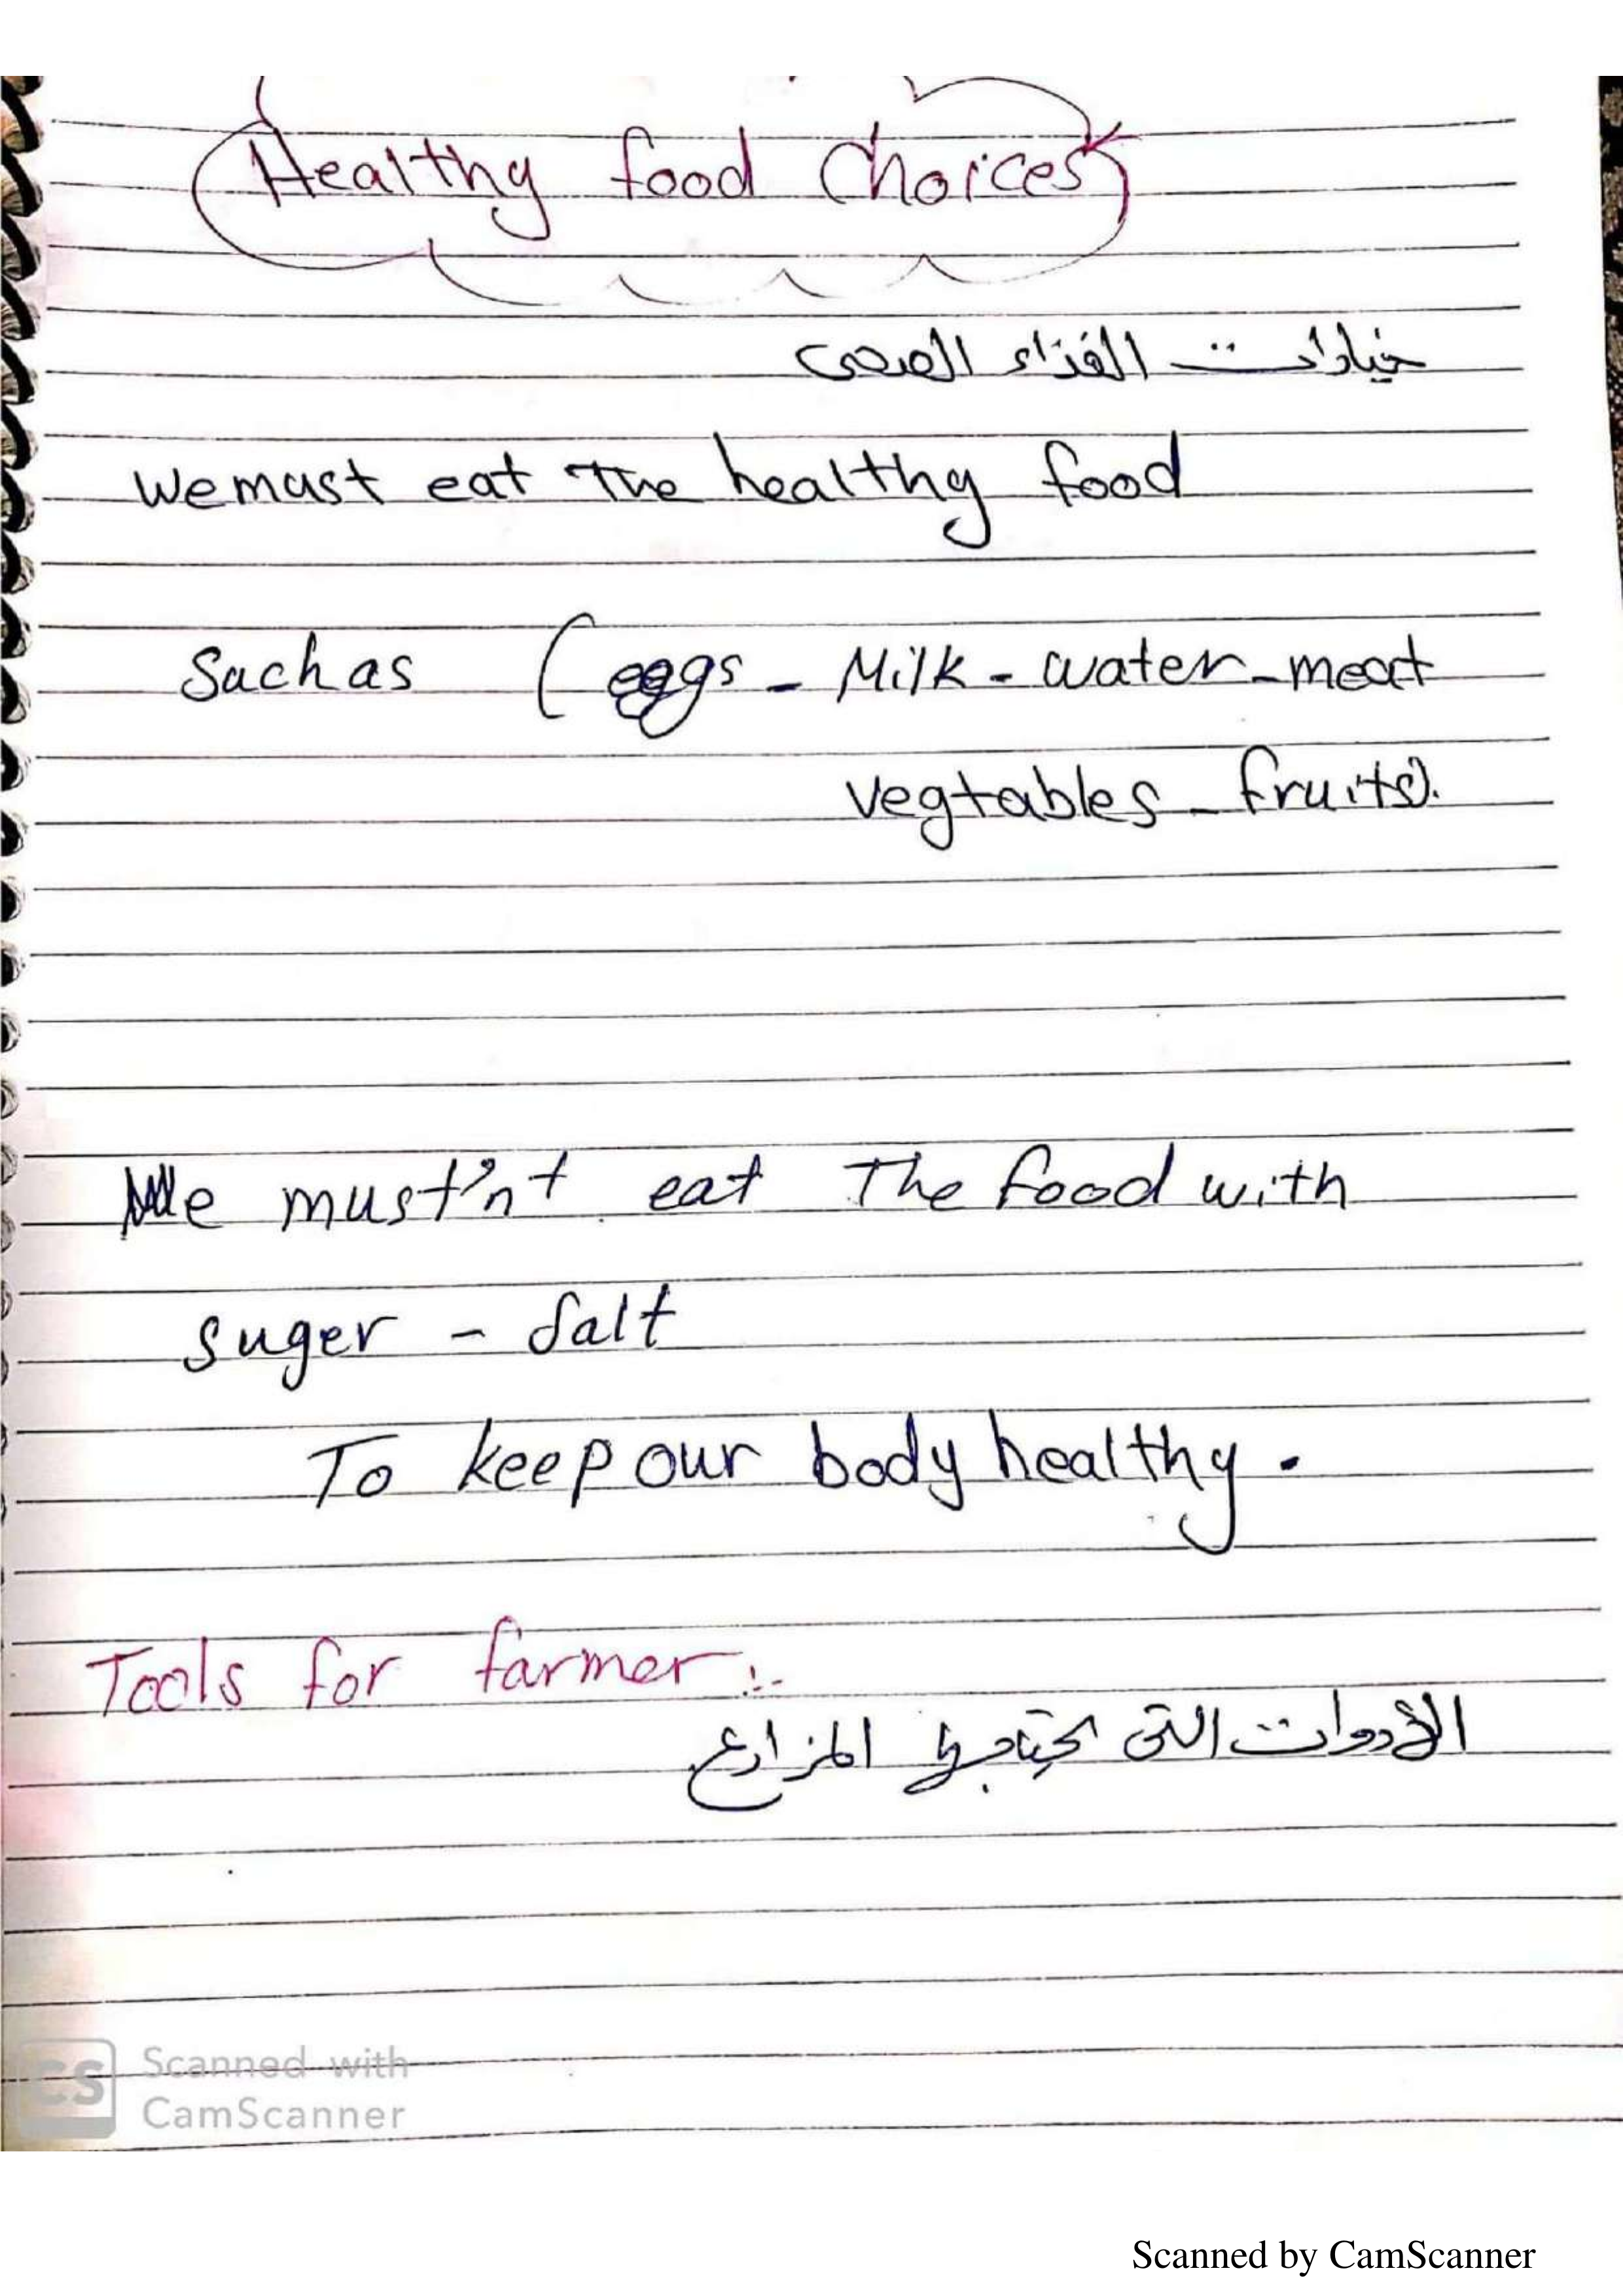 Healthy food Choices
خيارات الغذاء الصحى
We must eat The healthy food
Such as (eggs - Milk - water - meat
vegtables - fruits).
We must'nt eat The food with
suger - Salt
To keep our body healthy.
Tools for farmer :-
الأدوات التى يحتاجها المزارع
CS Scanned with
CamScanner
Scanned by CamScanner